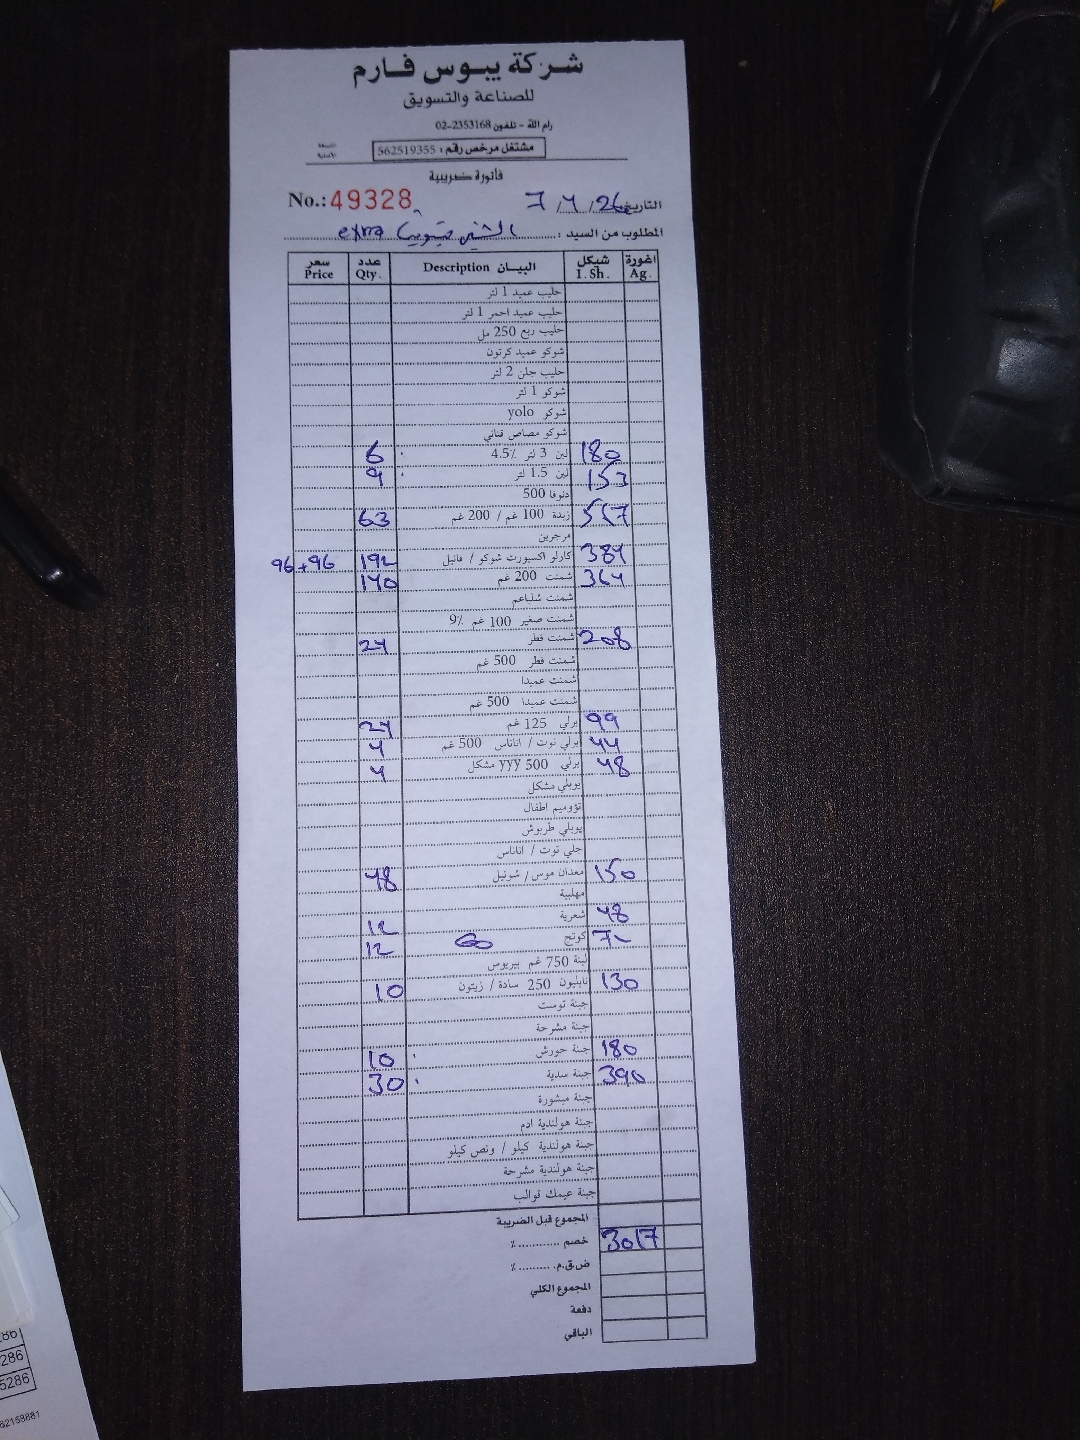 شركة يبوس فارم
للصناعة والتسويق
رام الله - تلفون 02-2353168
مشتغل مرخص رقم: 562519355
النسخة الأصلية
فاتورة ضريبية
No.: 49328 التاريخ 7/4/26
المطلوب من السيد: extra
سعر Price عدد Qty. البيان Description شيكل I. Sh. اغورة Ag.
حليب عميد 1 لتر
حليب عميد احمر 1 لتر
حليب ربع 250 مل
شوكو عميد كرتون
حليب جلن 2 لتر
شوكو 1 لتر
شوكو yolo
شوكو مصاص قناني
6 لبن 3 لتر 4.5٪ 180
9 لبن 1.5 لتر 153
دنوفا 500
63 زبدة 100 غم / 200 غم 567
مرجرين
96+96 192 كارلو اكسبورت شوكو / فانيل 384
140 شمنت 200 غم 364
شمنت شلباعم
شمنت صغير 100 غم 9٪
24 شمنت فطر 208
شمنت فطر 500 غم
شمنت عميدا
شمنت عميدا 500 غم
24 برلي 125 غم 99
4 برلي توت / اناناس 500 غم 44
4 برلي yyy 500 مشكل 48
يوبلي مشكل
تؤوميم اطفال
يوبلي طربوش
جلي توت / اناناس
48 معدان موس / شونيل 150
مهلبية
12 شعرية 48
12 كوتج 72
لبنة 750 غم بيريوس
10 نابليون 250 سادة / زيتون 130
جبنة توست
جبنة مشرحة
10 جبنة حورش 180
30 جبنة سدية 390
جبنة مبشورة
جبنة هولندية ادم
جبنة هولندية كيلو / ونص كيلو
جبنة هولندية مشرحة
جبنة عيمك قوالب
المجموع قبل الضريبة
خصم ............ ٪ 3017
ض.ق.م. .......... ٪
المجموع الكلي
دفعة
الباقي
286
286
5286
62158881